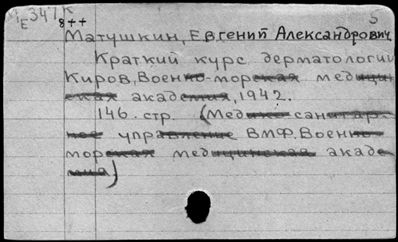 E347K
8++
5
Матушкин, Евгений Александрович
Краткий курс дерматологии
Киров, Военно-морская медицин
ская академия, 1942.
146. стр. (Медико-санитар.
ное управление ВМФ. Военно
морская медицинская акаде
мия)